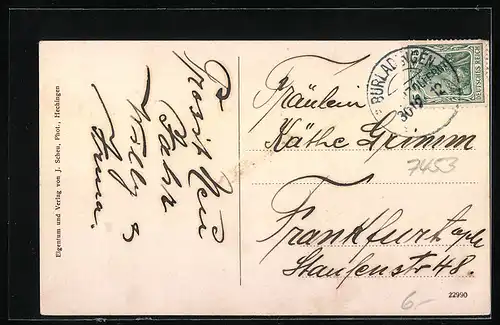 Eigentum und Verlag von J. Scheu, Phot., Hechingen
Prosit Neu
Jahr
Anna.
BURLADINGEN
30 12 12
DEUTSCHES REICH
Fräulein
Käthe Grimm
7453
Frankfurt
Staufenstr 48.
6.–
22990